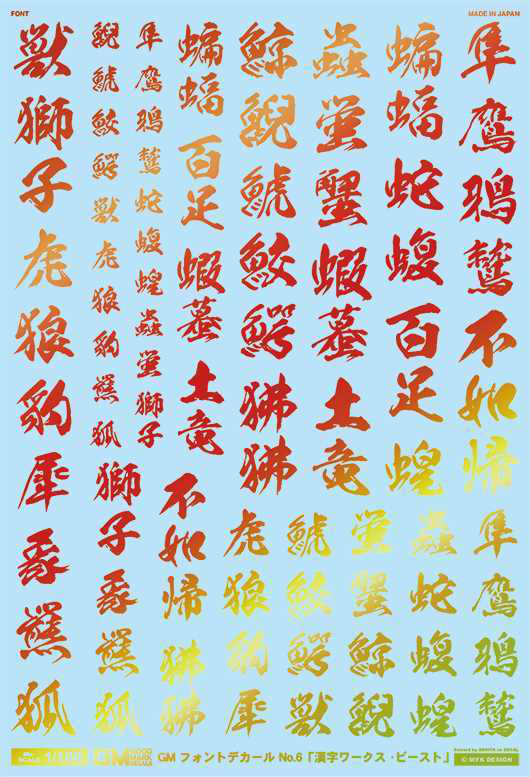 FONT
MADE IN JAPAN
獣
獅
子
虎
狼
豹
犀
豕
羆
狐
鯢
鯱
鮫
鰐
獣
虎
狼
豹
羆
狐
隼
鷹
鴉
鷲
蛇
蝮
蝗
蟲
蛍
獅
子
獅
子
豕
羆
狐
蝙
蝠
百
足
蝦
蟇
土
竜
不
如
帰
狒
狒
鯨
鯢
鯱
鮫
鰐
狒
狒
蟲
蛍
蟹
蝦
蟇
土
竜
蝙
蝠
蛇
蝮
百
足
蝗
隼
鷹
鴉
鷲
不
如
帰
虎 鯱 蛍 蟲 隼
狼 鮫 蟹 蛇 鷹
豹 鰐 鯨 蝮 鴉
犀 獣 鯢 蝗 鷲
GM フォントデカール No.6「漢字ワークス・ビースト」
© MYK DESIGN